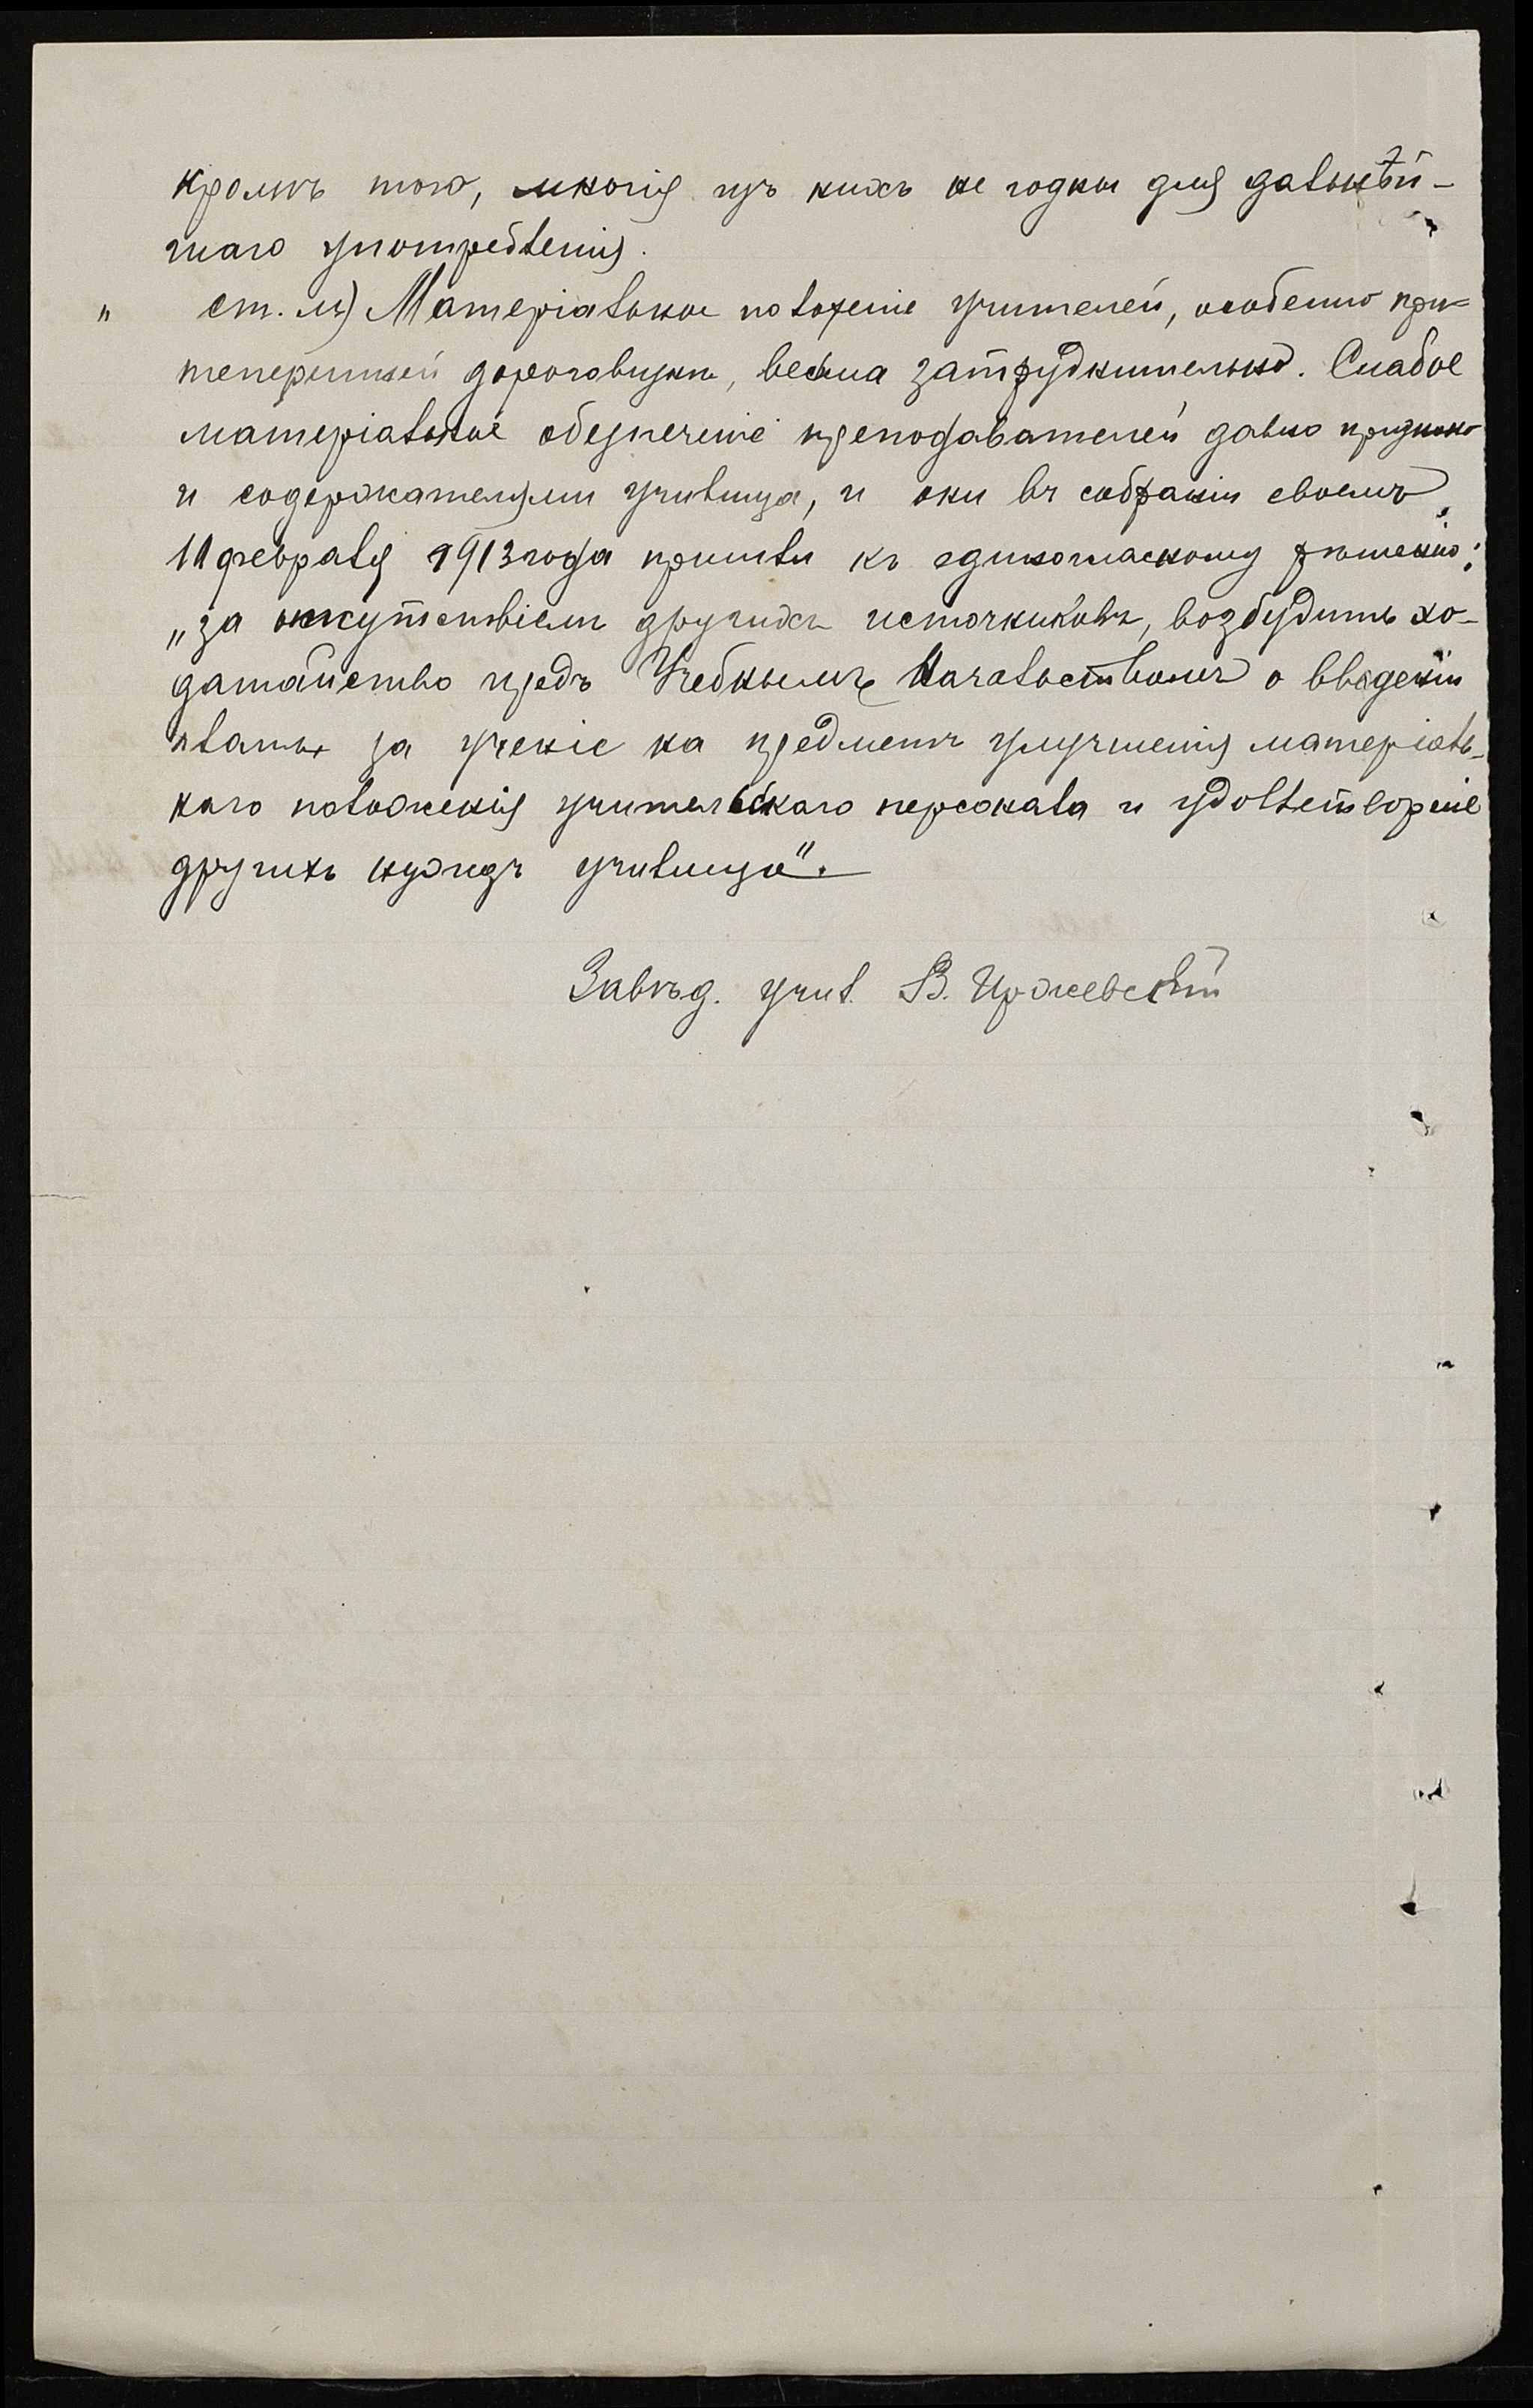 кромѣ того, многія изъ нихъ не годны для дальнѣй-
шаго употребленія.
„ ст. м) Матеріальное положеніе учителей, особенно при
теперишней дороговизнѣ, весьма затруднительно. Слабое
матеріальное обезпеченіе преподавателей давно признано
и содержателями училища, и они въ собраніи своемъ
11 февраля 1913 года пришли къ единогласному рѣшенію:
„за отсутствіемъ другихъ источниковъ, возбудить хо-
датайство предъ Учебнымъ Начальствомъ о введеніи
платы за ученіе на предметъ улучшенія матеріаль-
наго положенія учительскаго персонала и удовлетвореніе
другихъ нуждъ училища".
Завѣд. учил. В.